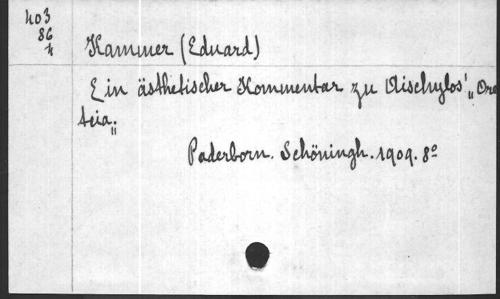 403
86
k
Kammer (Eduard)
Ein ästhetischer Kommentar zu Aischylos' „Ore
teia."
Paderborn. Schöningh. 1909. 8º